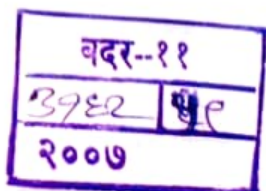 बदर--११
३१६२
२००७